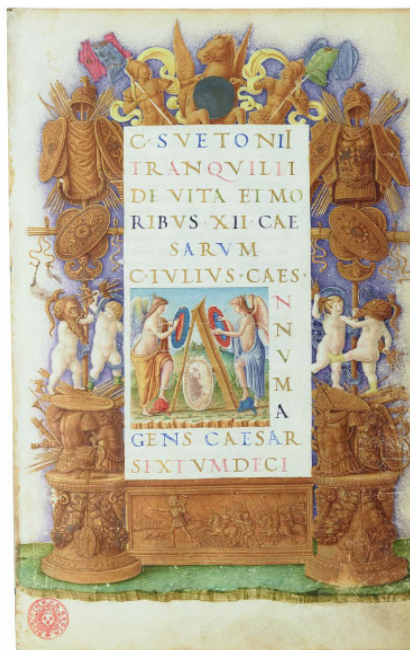 C·SVETONII
TRANQVILII
DE VITA ET MO
RIBVS·XII·CAE
SARVM
C·IVLIVS·CAES·
A
N
N
V
M
A
GENS CAESAR
SEXTVM DECI